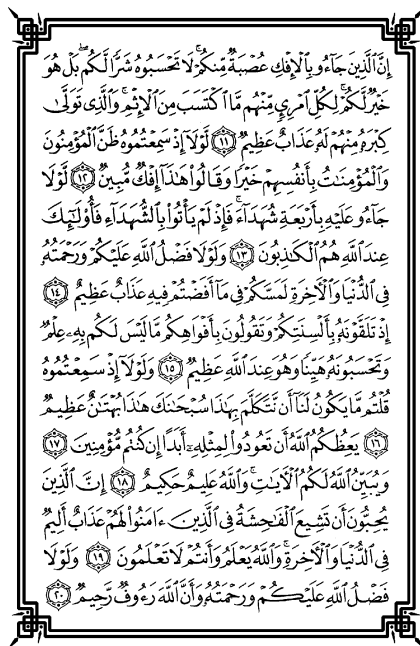 إِنَّ ٱلَّذِينَ جَآءُو بِٱلْإِفْكِ عُصْبَةٌ مِّنكُمْ ۚ لَا تَحْسَبُوهُ شَرًّا لَّكُم ۖ بَلْ هُوَ
خَيْرٌ لَّكُمْ ۚ لِكُلِّ ٱمْرِئٍ مِّنْهُم مَّا ٱكْتَسَبَ مِنَ ٱلْإِثْمِ ۚ وَٱلَّذِى تَوَلَّىٰ
كِبْرَهُۥ مِنْهُمْ لَهُۥ عَذَابٌ عَظِيمٌ ﴿١١﴾ لَّوْلَآ إِذْ سَمِعْتُمُوهُ ظَنَّ ٱلْمُؤْمِنُونَ
وَٱلْمُؤْمِنَٰتُ بِأَنفُسِهِمْ خَيْرًا وَقَالُوا۟ هَٰذَآ إِفْكٌ مُّبِينٌ ﴿١٢﴾ لَّوْلَا
جَآءُو عَلَيْهِ بِأَرْبَعَةِ شُهَدَآءَ ۚ فَإِذْ لَمْ يَأْتُوا۟ بِٱلشُّهَدَآءِ فَأُو۟لَٰٓئِكَ
عِندَ ٱللَّهِ هُمُ ٱلْكَٰذِبُونَ ﴿١٣﴾ وَلَوْلَا فَضْلُ ٱللَّهِ عَلَيْكُمْ وَرَحْمَتُهُۥ
فِى ٱلدُّنْيَا وَٱلْءَاخِرَةِ لَمَسَّكُمْ فِى مَآ أَفَضْتُمْ فِيهِ عَذَابٌ عَظِيمٌ ﴿١٤﴾
إِذْ تَلَقَّوْنَهُۥ بِأَلْسِنَتِكُمْ وَتَقُولُونَ بِأَفْوَاهِكُم مَّا لَيْسَ لَكُم بِهِۦ عِلْمٌ
وَتَحْسَبُونَهُۥ هَيِّنًا وَهُوَ عِندَ ٱللَّهِ عَظِيمٌ ﴿١٥﴾ وَلَوْلَآ إِذْ سَمِعْتُمُوهُ
قُلْتُم مَّا يَكُونُ لَنَآ أَن نَّتَكَلَّمَ بِهَٰذَا سُبْحَٰنَكَ هَٰذَا بُهْتَٰنٌ عَظِيمٌ
﴿١٦﴾ يَعِظُكُمُ ٱللَّهُ أَن تَعُودُوا۟ لِمِثْلِهِۦٓ أَبَدًا إِن كُنتُم مُّؤْمِنِينَ ﴿١٧﴾
وَيُبَيِّنُ ٱللَّهُ لَكُمُ ٱلْءَايَٰتِ ۚ وَٱللَّهُ عَلِيمٌ حَكِيمٌ ﴿١٨﴾ إِنَّ ٱلَّذِينَ
يُحِبُّونَ أَن تَشِيعَ ٱلْفَٰحِشَةُ فِى ٱلَّذِينَ ءَامَنُوا۟ لَهُمْ عَذَابٌ أَلِيمٌ
فِى ٱلدُّنْيَا وَٱلْءَاخِرَةِ ۚ وَٱللَّهُ يَعْلَمُ وَأَنتُمْ لَا تَعْلَمُونَ ﴿١٩﴾ وَلَوْلَا
فَضْلُ ٱللَّهِ عَلَيْكُمْ وَرَحْمَتُهُۥ وَأَنَّ ٱللَّهَ رَءُوفٌ رَّحِيمٌ ﴿٢٠﴾